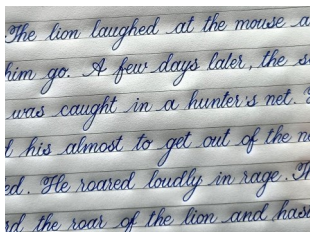 The lion laughed at the mouse a
him go. A few days later, the s
was caught in a hunter's net.
t his almost to get out of the ne
ed. He roared loudly in rage. Th
rd the roar of the lion and hast